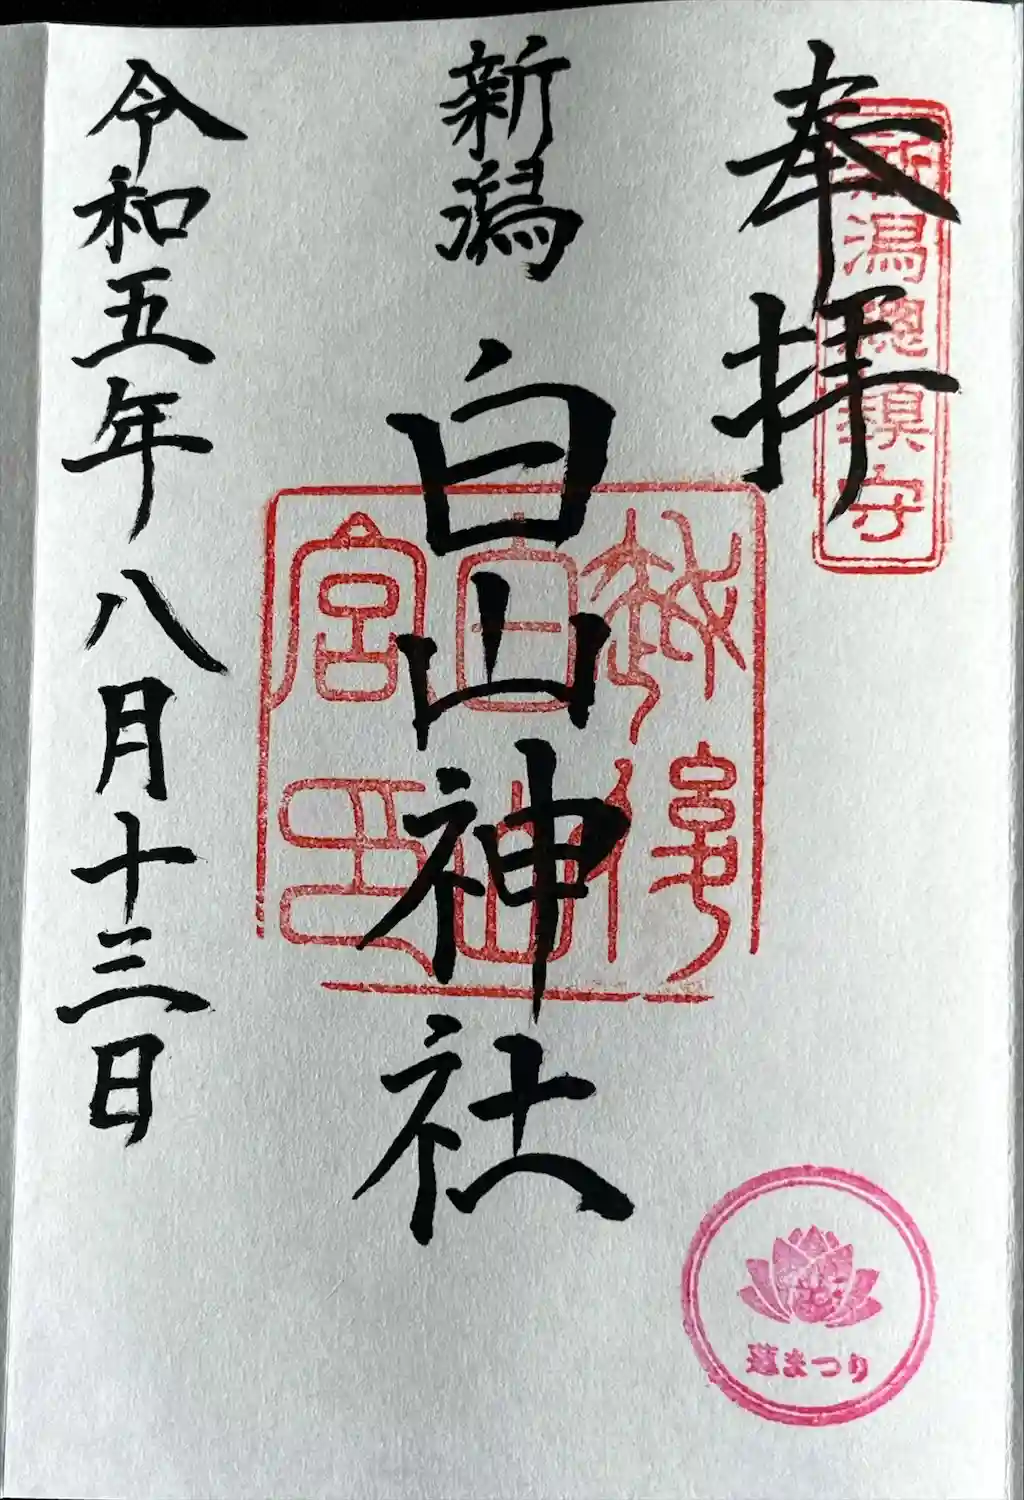 奉拝
新潟總鎮守
新潟
白山神社
越後
白山
宮印
令和五年八月十三日
蓮まつり